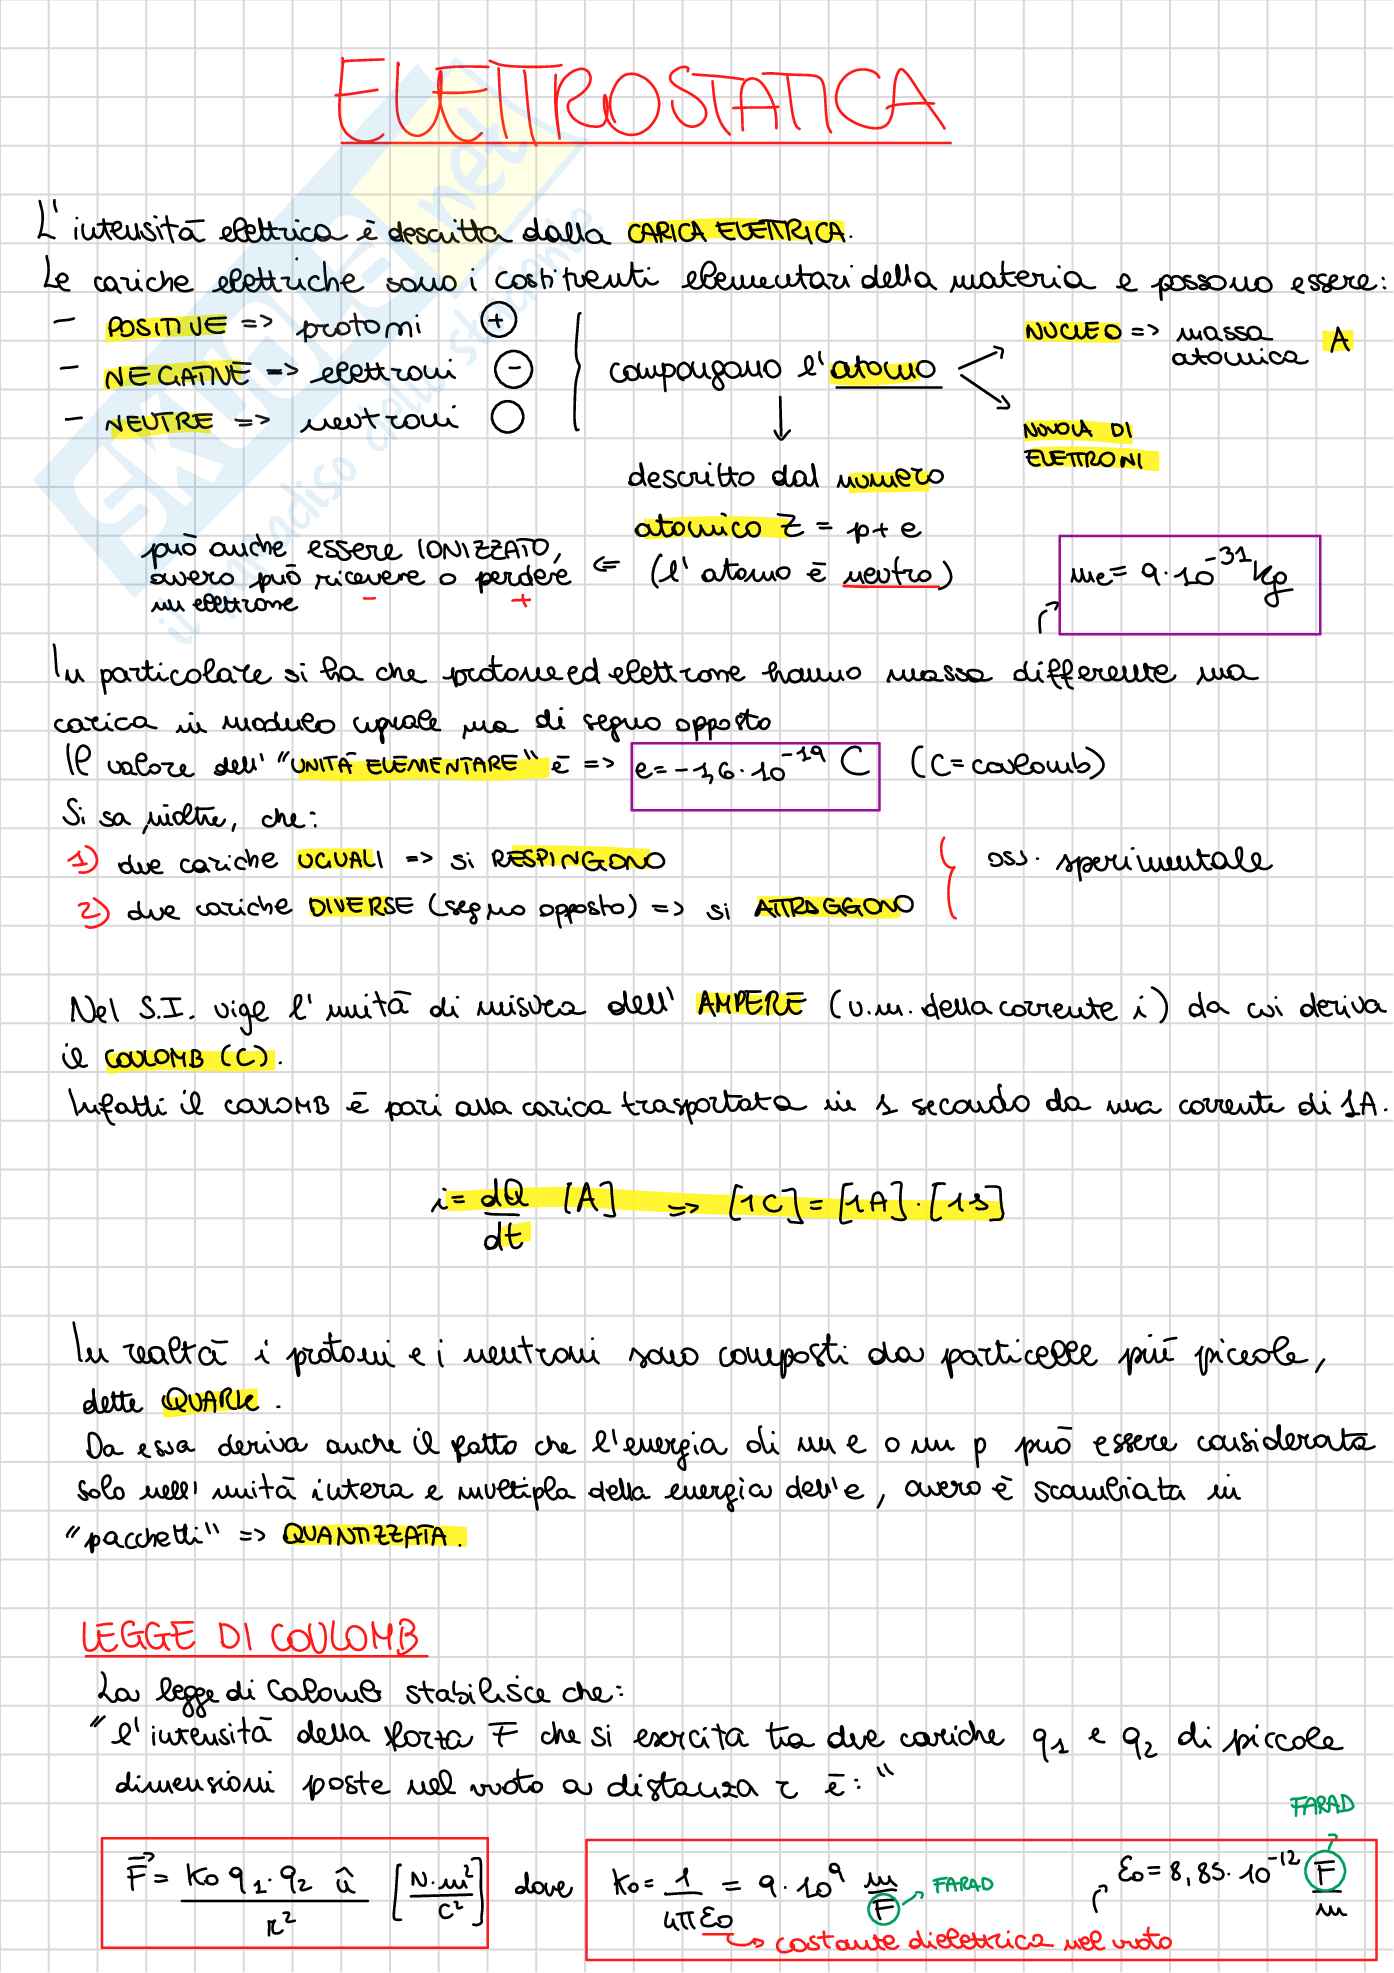 ELETTROSTATICA
L'intensità elettrica è descritta dalla CARICA ELETTRICA.
Le cariche elettriche sono i costituenti elementari della materia e possono essere:
- POSITIVE => protoni +
- NEGATIVE => elettroni -
- NEUTRE => neutroni
compongono l'atomo
NUCLEO => massa
atomica A
NUVOLA DI
ELETTRONI
descritto dal numero
atomico Z = p+e
(l'atomo è neutro)
può anche essere IONIZZATO, <=
ovvero può ricevere o perdere
un elettrone - +
me = 9·10^-31 kg
In particolare si ha che protone ed elettrone hanno massa differente ma
carica in modulo uguale ma di segno opposto
Il valore dell' "UNITÀ ELEMENTARE" è => e = -1,6·10^-19 C (C = coulomb)
Si sa inoltre, che:
1) due cariche UGUALI => si RESPINGONO
2) due cariche DIVERSE (segno opposto) => si ATTRAGGONO
oss. sperimentale
Nel S.I. vige l'unità di misura dell' AMPERE (u.m. della corrente i) da cui deriva
il COULOMB (C).
Infatti il COULOMB è pari alla carica trasportata in 1 secondo da una corrente di 1A.
i = dQ/dt [A] => [1C] = [1A]·[1s]
In realtà i protoni e i neutroni sono composti da particelle più piccole,
dette QUARK.
Da essa deriva anche il fatto che l'energia di un e o un p può essere considerata
solo nell'unità intera e multipla della energia dell'e, ovvero è scambiata in
"pacchetti" => QUANTIZZATA.
LEGGE DI COULOMB
La legge di Coulomb stabilisce che:
"l'intensità della forza F che si esercita tra due cariche q1 e q2 di piccole
dimensioni poste nel vuoto a distanza r è:"
F = K0 q1·q2 û / r² [N·m²/C²] dove K0 = 1/4πε0 = 9·10^9 m/F FARAD
ε0 = 8,85·10^-12 F/m FARAD
costante dielettrica nel vuoto
skuola.net
il paradiso dello studente